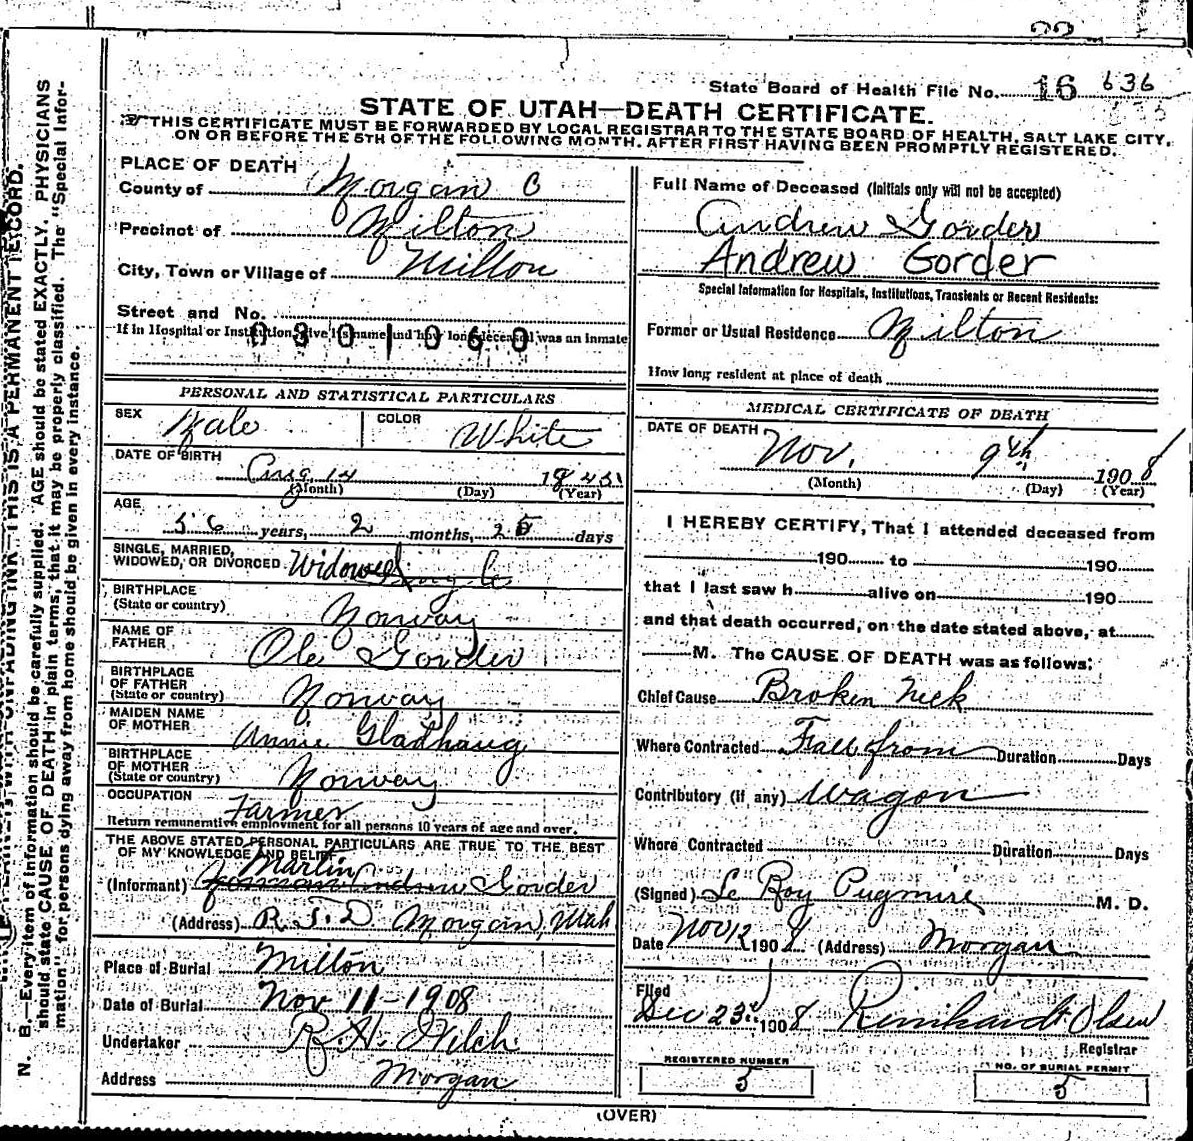 State Board of Health File No. 16 636
STATE OF UTAH—DEATH CERTIFICATE.
THIS CERTIFICATE MUST BE FORWARDED BY LOCAL REGISTRAR TO THE STATE BOARD OF HEALTH, SALT LAKE CITY,
ON OR BEFORE THE 5TH OF THE FOLLOWING MONTH. AFTER FIRST HAVING BEEN PROMPTLY REGISTERED.
PLACE OF DEATH
County of Morgan C
Precinct of Milton
City, Town or Village of Milton
Street and No.
If in Hospital or Institution, give its name and how long deceased was an inmate
0301960
PERSONAL AND STATISTICAL PARTICULARS
SEX Male COLOR White
DATE OF BIRTH
Aug. 14 1845
(Month) (Day) (Year)
AGE
56 years, 2 months, 25 days
SINGLE, MARRIED,
WIDOWED, OR DIVORCED Widowed
BIRTHPLACE
(State or country) Norway
NAME OF
FATHER Ole Gorder
BIRTHPLACE
OF FATHER
(State or country) Norway
MAIDEN NAME
OF MOTHER Annie Gladhaug
BIRTHPLACE
OF MOTHER
(State or country) Norway
OCCUPATION Farmer
Return remunerative employment for all persons 10 years of age and over.
THE ABOVE STATED PERSONAL PARTICULARS ARE TRUE TO THE BEST
OF MY KNOWLEDGE AND BELIEF
Martin
(Informant) Andrew Gorder
(Address) R.F.D Morgan, Utah
Place of Burial Milton
Date of Burial Nov 11-1908
Undertaker R. H. Welch
Address Morgan
Full Name of Deceased (Initials only will not be accepted)
Andrew Gorder
Andrew Gorder
Special Information for Hospitals, Institutions, Transients or Recent Residents:
Former or Usual Residence Milton
How long resident at place of death
MEDICAL CERTIFICATE OF DEATH
DATE OF DEATH
Nov. 9th 1908
(Month) (Day) (Year)
I HEREBY CERTIFY, That I attended deceased from
190 to 190
that I last saw h alive on 190
and that death occurred, on the date stated above, at
M. The CAUSE OF DEATH was as follows:
Chief Cause Broken Neck
Where Contracted Fall from Duration Days
Contributory (if any) Wagon
Where Contracted Duration Days
(Signed) Le Roy Pugmire M. D.
Date Nov 12 1908 (Address) Morgan
Filed
Dec 23 1908 Reinhardt Olsen
Registrar
REGISTERED NUMBER
5
NO. OF BURIAL PERMIT
5
(OVER)
N. B.—Every item of information should be carefully supplied. AGE should be stated EXACTLY. PHYSICIANS
should state CAUSE OF DEATH in plain terms, that it may be properly classified. The "Special Infor-
mation" for persons dying away from home should be given in every instance.
WITH UNFADING INK—THIS IS A PERMANENT RECORD.